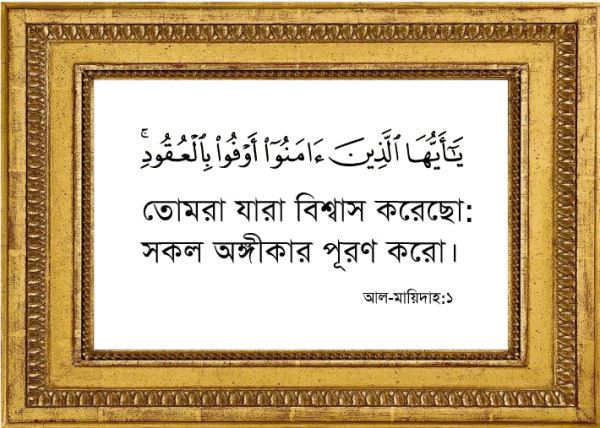 يَٰٓأَيُّهَا ٱلَّذِينَ ءَامَنُوٓا۟ أَوْفُوا۟ بِٱلْعُقُودِ ۚ
তোমরা যারা বিশ্বাস করেছো:
সকল অঙ্গীকার পূরণ করো।
আল-মায়িদাহ:১